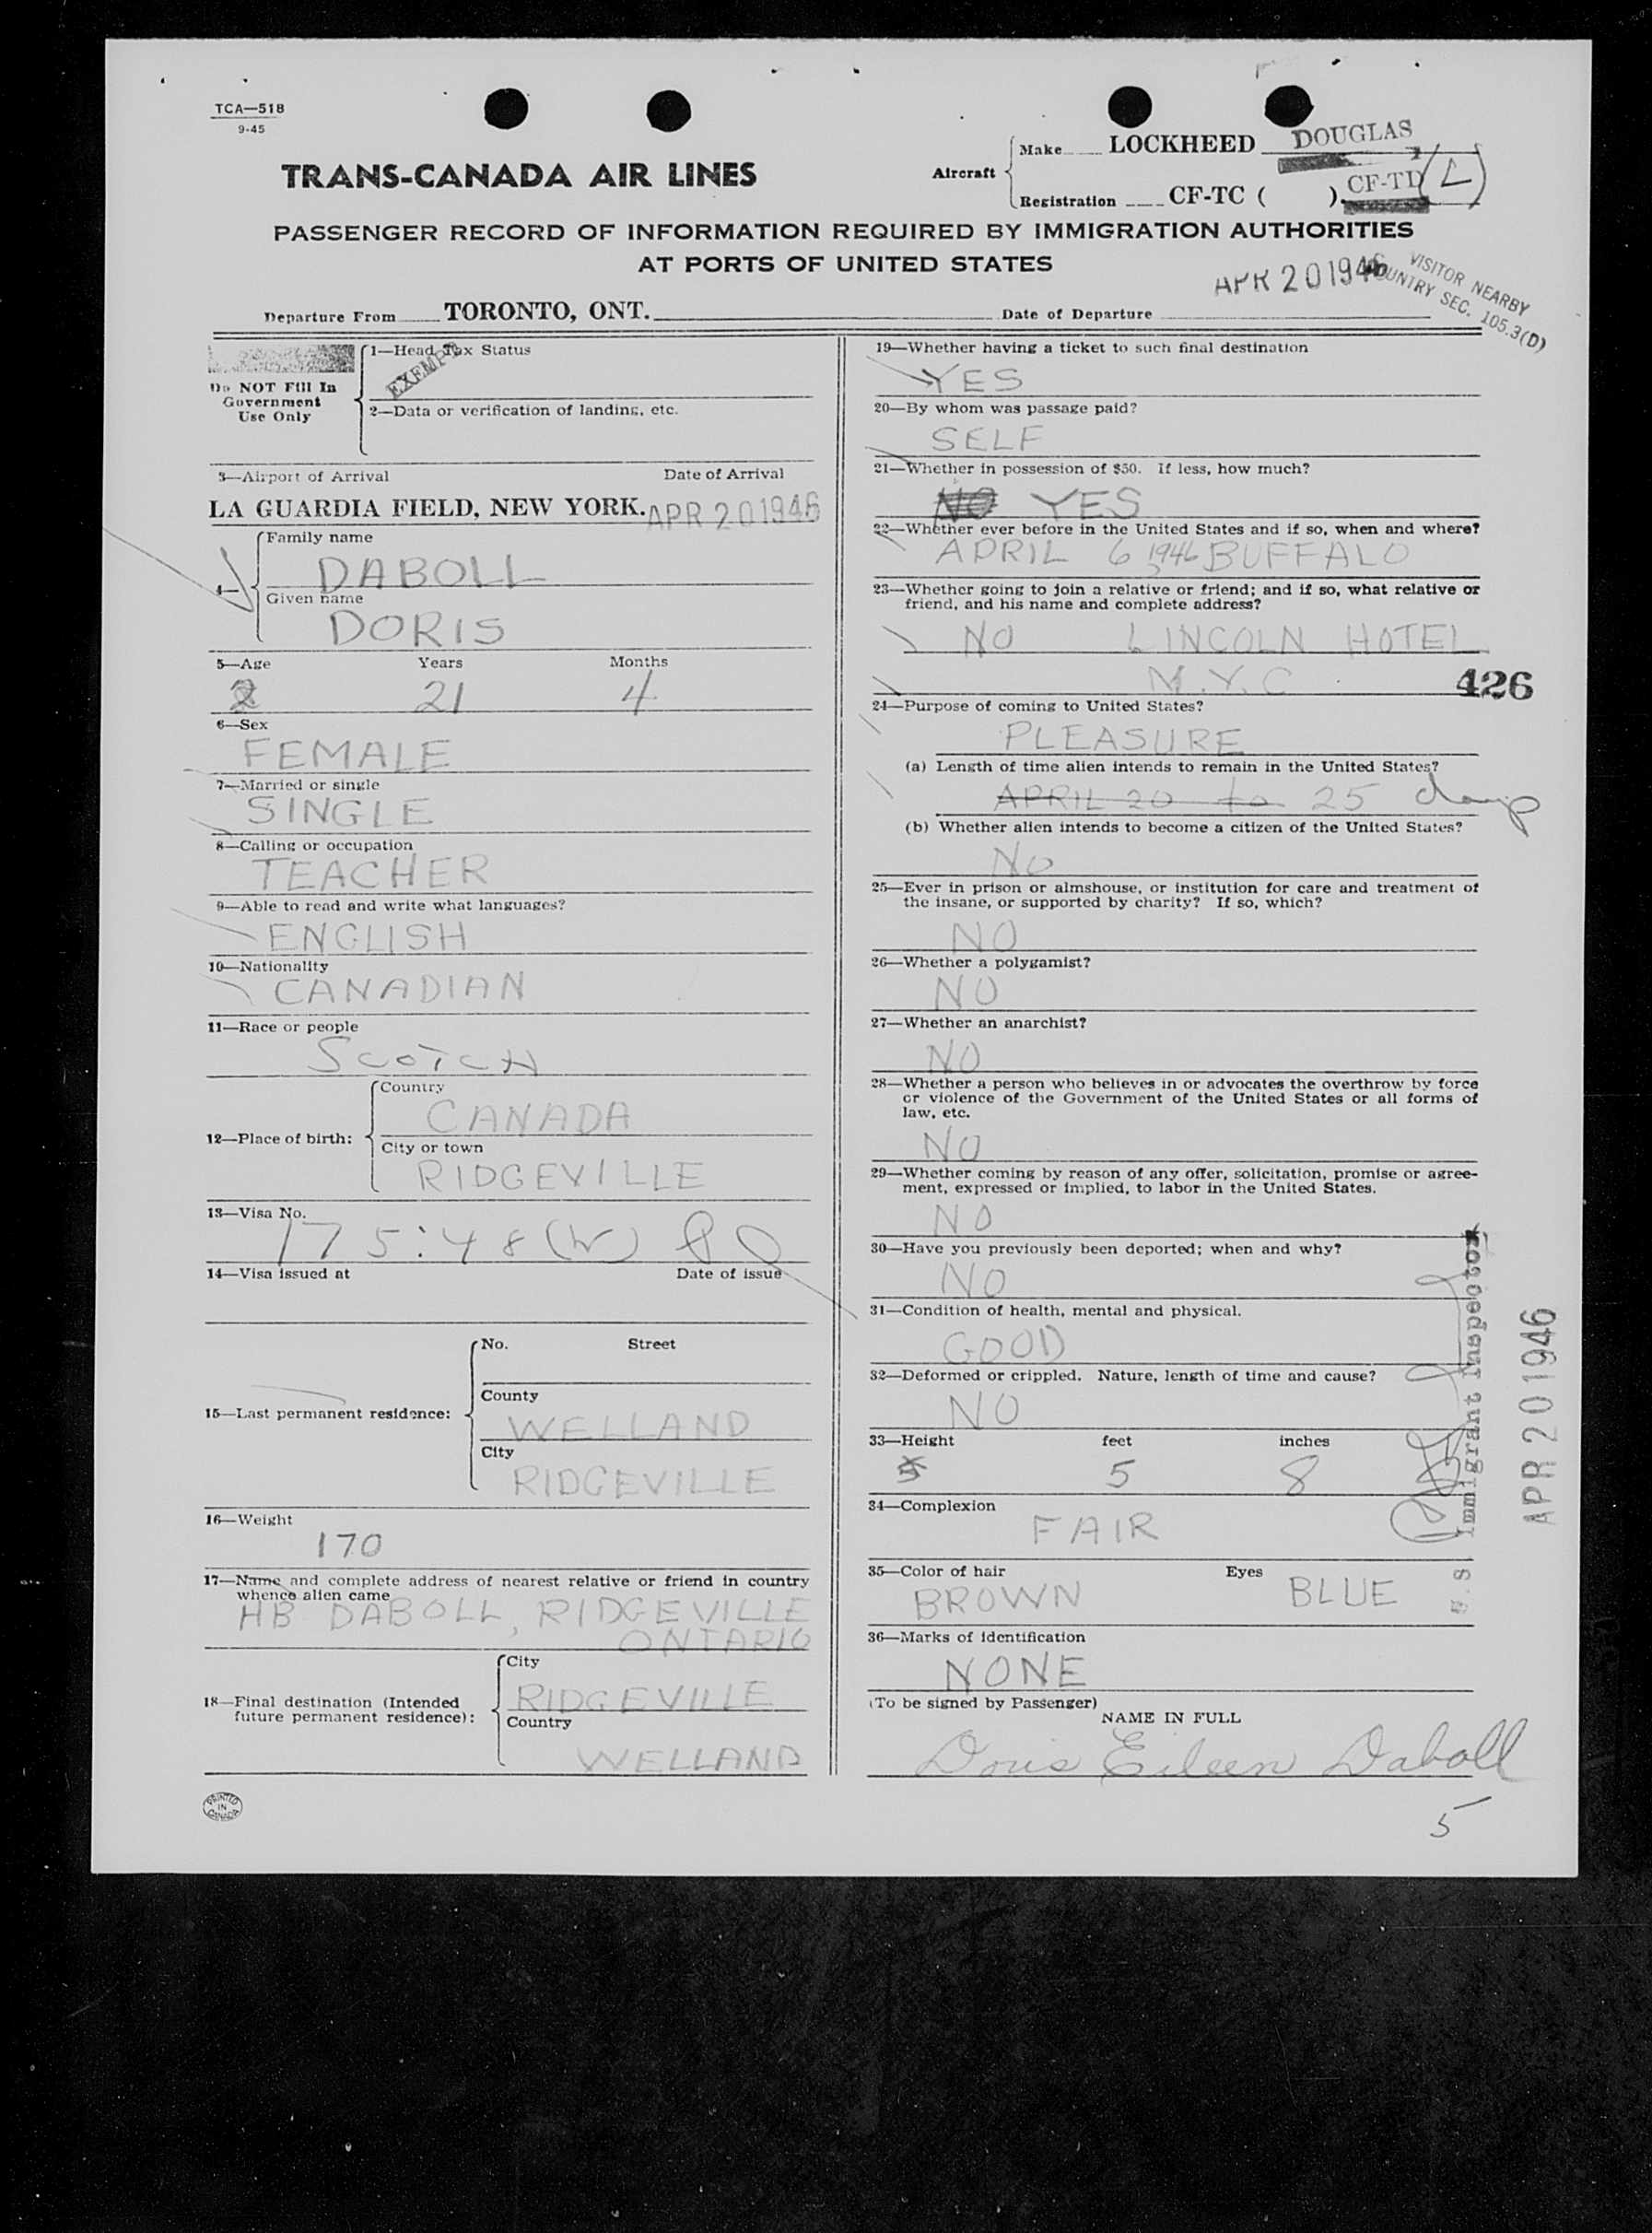 TCA—518
9-45
TRANS-CANADA AIR LINES
Aircraft
Make LOCKHEED DOUGLAS
Registration CF-TC ( ). CF-TD (L)
PASSENGER RECORD OF INFORMATION REQUIRED BY IMMIGRATION AUTHORITIES
AT PORTS OF UNITED STATES
APR 20 1946
VISITOR NEARBY
COUNTRY SEC. 105.3(D)
Departure From TORONTO, ONT. Date of Departure
Do NOT Fill In
Government
Use Only
1—Head Tax Status
EXEMPT
2—Data or verification of landing, etc.
3—Airport of Arrival Date of Arrival
LA GUARDIA FIELD, NEW YORK. APR 20 1946
4—
Family name
DABOLL
Given name
DORIS
5—Age Years Months
2 21 4
6—Sex
FEMALE
7—Married or single
SINGLE
8—Calling or occupation
TEACHER
9—Able to read and write what languages?
ENGLISH
10—Nationality
CANADIAN
11—Race or people
SCOTCH
12—Place of birth:
Country
CANADA
City or town
RIDGEVILLE
13—Visa No.
175:48(W)
14—Visa issued at Date of issue
15—Last permanent residence:
No. Street
County
WELLAND
City
RIDGEVILLE
16—Weight
170
17—Name and complete address of nearest relative or friend in country
whence alien came
HB DABOLL, RIDGEVILLE
ONTARIO
18—Final destination (Intended
future permanent residence):
City
RIDGEVILLE
Country
WELLAND
PRINTED
IN
CANADA
19—Whether having a ticket to such final destination
YES
20—By whom was passage paid?
SELF
21—Whether in possession of $50. If less, how much?
NO YES
22—Whether ever before in the United States and if so, when and where?
APRIL 6, 1946 BUFFALO
23—Whether going to join a relative or friend; and if so, what relative or
friend, and his name and complete address?
NO LINCOLN HOTEL
N.Y.C
426
24—Purpose of coming to United States?
PLEASURE
(a) Length of time alien intends to remain in the United States?
APRIL 20 to 25 days
(b) Whether alien intends to become a citizen of the United States?
NO
25—Ever in prison or almshouse, or institution for care and treatment of
the insane, or supported by charity? If so, which?
NO
26—Whether a polygamist?
NO
27—Whether an anarchist?
NO
28—Whether a person who believes in or advocates the overthrow by force
or violence of the Government of the United States or all forms of
law, etc.
NO
29—Whether coming by reason of any offer, solicitation, promise or agree-
ment, expressed or implied, to labor in the United States.
NO
30—Have you previously been deported; when and why?
NO
31—Condition of health, mental and physical.
GOOD
32—Deformed or crippled. Nature, length of time and cause?
NO
33—Height feet inches
5 5 8
34—Complexion
FAIR
35—Color of hair Eyes
BROWN BLUE
36—Marks of identification
NONE
(To be signed by Passenger)
NAME IN FULL
Doris Eileen Daboll
5
U.S. Immigrant Inspector
APR 20 1946